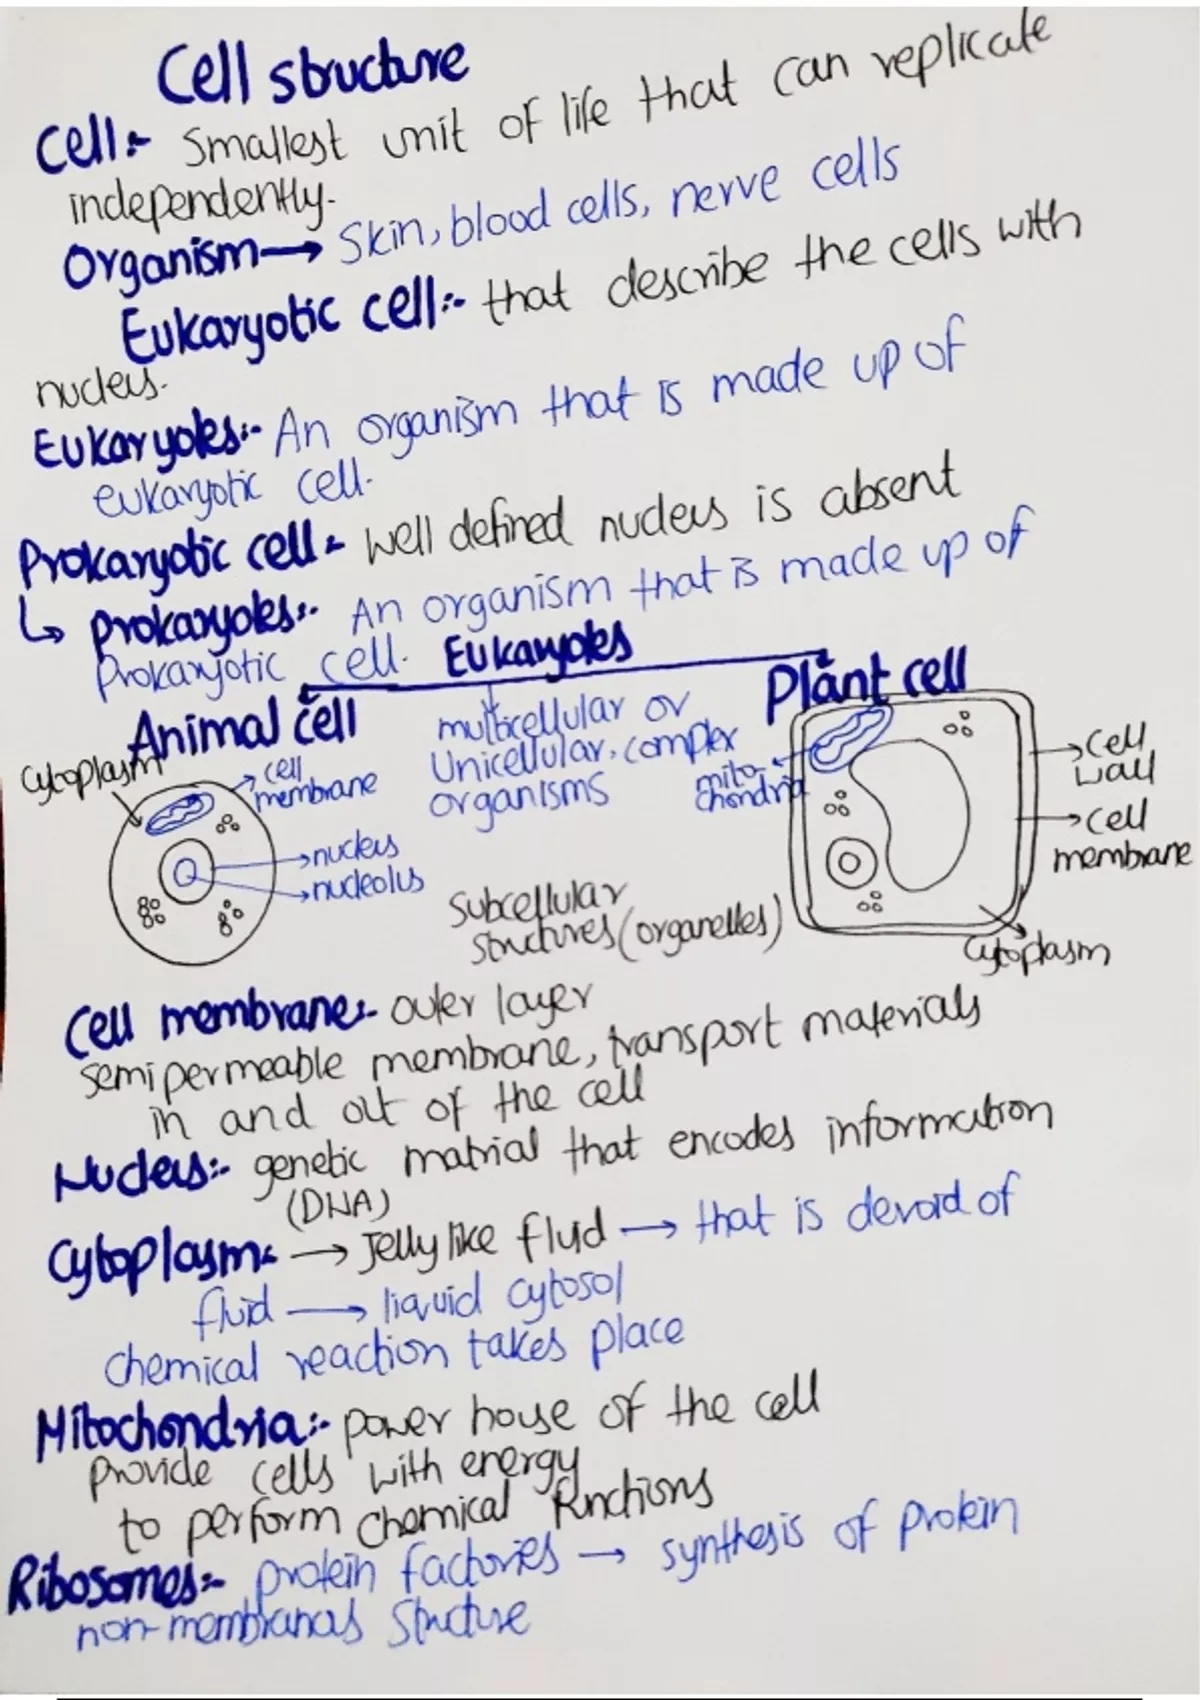 Cell structure
Cell:- Smallest unit of life that can replicate
independently.
Organism → Skin, blood cells, nerve cells
Eukaryotic cell:- that describe the cells with
nucleus.
Eukaryotes:- An organism that is made up of
eukaryotic cell.
Prokaryotic cell:- well defined nucleus is absent
↳ Prokaryotes:- An organism that is made up of
Prokaryotic cell.
Eukaryotes
Animal cell
Plant cell
multicellular or
Unicellular, complex
organisms
Cytoplasm
cell
membrane
nucleus
nucleolus
Subcellular
Structures (organelles)
mito-
chondria
cell
wall
cell
membrane
Cytoplasm
Cell membrane:- outer layer
semipermeable membrane, transport materials
in and out of the cell
Nucleus:- genetic matrial that encodes information
(DNA)
Cytoplasm:- → Jelly like fluid → that is devoid of
fluid → liquid cytosol
chemical reaction takes place
Mitochondria:- power house of the cell
Provide cells with energy
to perform chemical functions
Ribosomes:- protein factories → synthesis of protein
non-membranas Structure